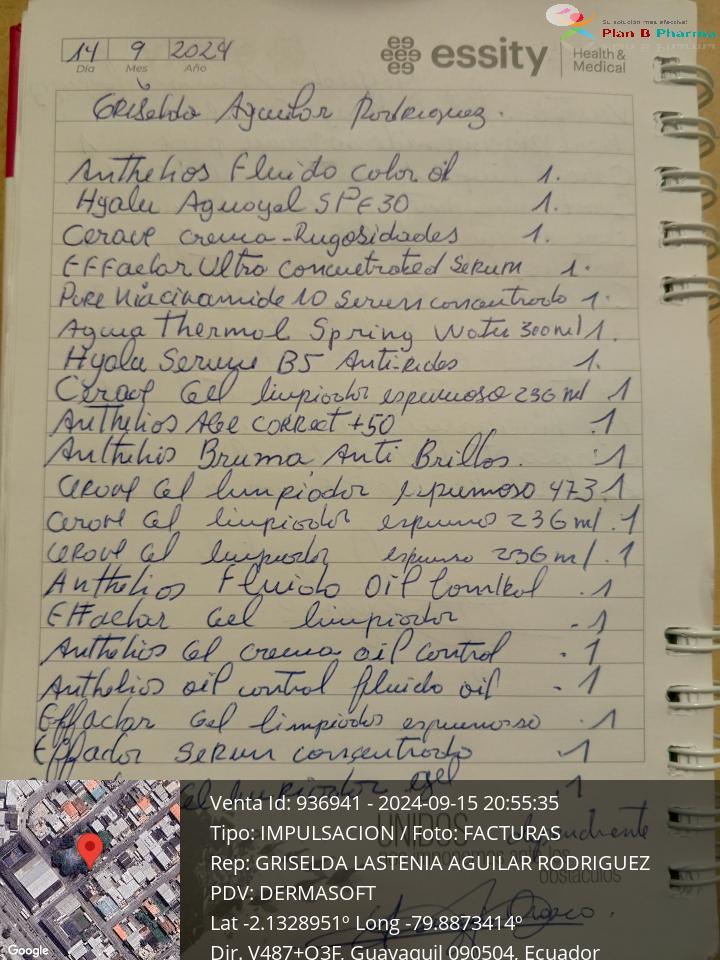 Su solución más efectiva!
Plan B Pharma
14 9 2024
Día Mes Año
essity Health & Medical
Griselda Aguilar Rodriguez.
Anthelios Fluido color oil 1.
Hyalu Aguagel SPF 30 1.
Cerave crema-Rugosidades 1.
EFFaclar Ultra Concentrated Serum 1.
Pure Niacinamide 10 Serum concentrado 1.
Agua Thermal Spring Water 300ml 1.
Hyalu Serum B5 Anti-
Cerave Gel limpiador espumoso 236 ml 1
Anthelios Age correct +50 .1
Anthelios Bruma Anti Brillos. .1
Cerave Gel limpiador espumoso 473.1
Cerave Gel limpiador espumo 236 ml .1
Cerave Gel limpiador espumo 236 ml .1
Anthelios Fluido Oil Control .1
Effaclar Gel limpiador -1
Anthelios Gel crema oil control .1
Anthelios oil control fluido oil -1
Effaclar Gel limpiador espumoso .1
Effaclar Serum concentrado .1
Gel limpiador .1
UNIDOS
obstáculos
Venta Id: 936941 - 2024-09-15 20:55:35
Tipo: IMPULSACION / Foto: FACTURAS
Rep: GRISELDA LASTENIA AGUILAR RODRIGUEZ
PDV: DERMASOFT
Lat -2.1328951º Long -79.8873414º
Dir. V487+Q3F, Guayaquil 090504, Ecuador
Google